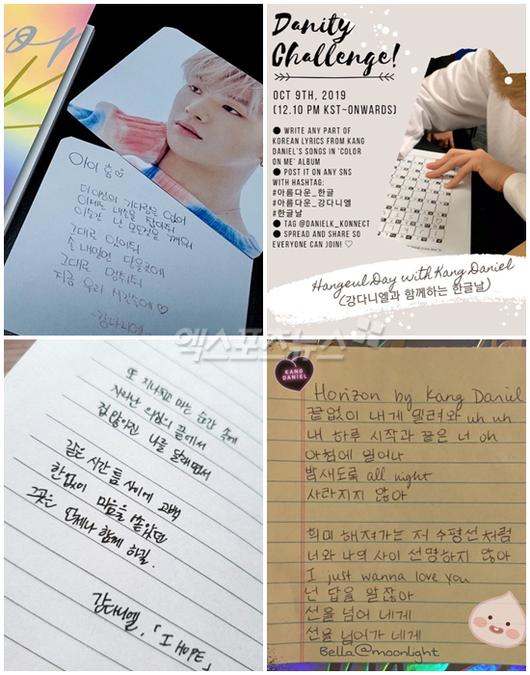 더 이상의 기다림은 없어
이제는 내 손을 잡아줘
이 순간 난 모든 것을 깨워
그대로 있어줘
손 내밀면 닿을 곳에
그대로 멈춰줘
지금 우리 시간 속에♡
-강다니엘-
Danity
Challenge!
OCT 9TH, 2019
(12.10 PM KST~ONWARDS)
● WRITE ANY PART OF
KOREAN LYRICS FROM KANG
DANIEL'S SONGS IN 'COLOR
ON ME' ALBUM
● POST IT ON ANY SNS
WITH HASHTAG:
#아름다운_한글
#아름다운_강다니엘
#한글날
● TAG @DANIELK_KONNECT
● SPREAD AND SHARE SO
EVERYONE CAN JOIN! ♡
Hangeul Day with Kang Daniel
(강다니엘과 함께하는 한글날)
엑스포츠뉴스
또 지나치고 마는 순간 속에
자라난 의심의 끝에서
겁 많아진 나를 달래면서
같은 시간 틈 사이에 고백
한없이 마음을 쏟았던
그곳은 언제나 함께 하길.
강다니엘, 「I HOPE」
KANG
DANIEL
Horizon by Kang Daniel
끝없이 내게 밀려와 uh uh
내 하루 시작과 끝은 너 oh
아침에 일어나
밤새도록 all night
사라지지 않아
희미해져가는 저 수평선처럼
너와 나의 사이 선명하지 않아
I just wanna love you
넌 답을 알잖아
선을 넘어 네게
선을 넘어가 네게
Bella@moonlight